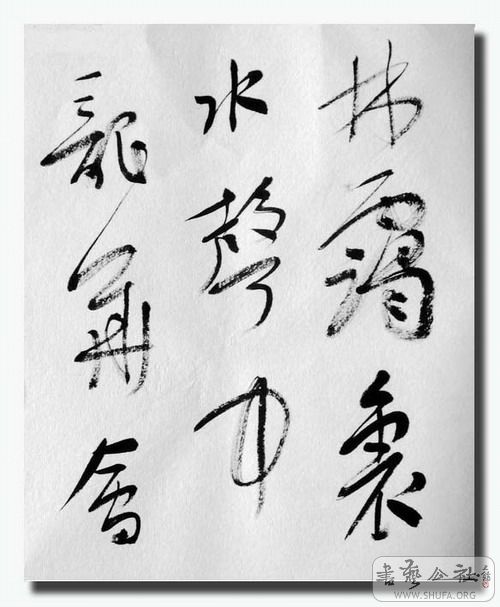 林靄裏
水聲中
龍會
書藝公社
WWW.SHUFA.ORG